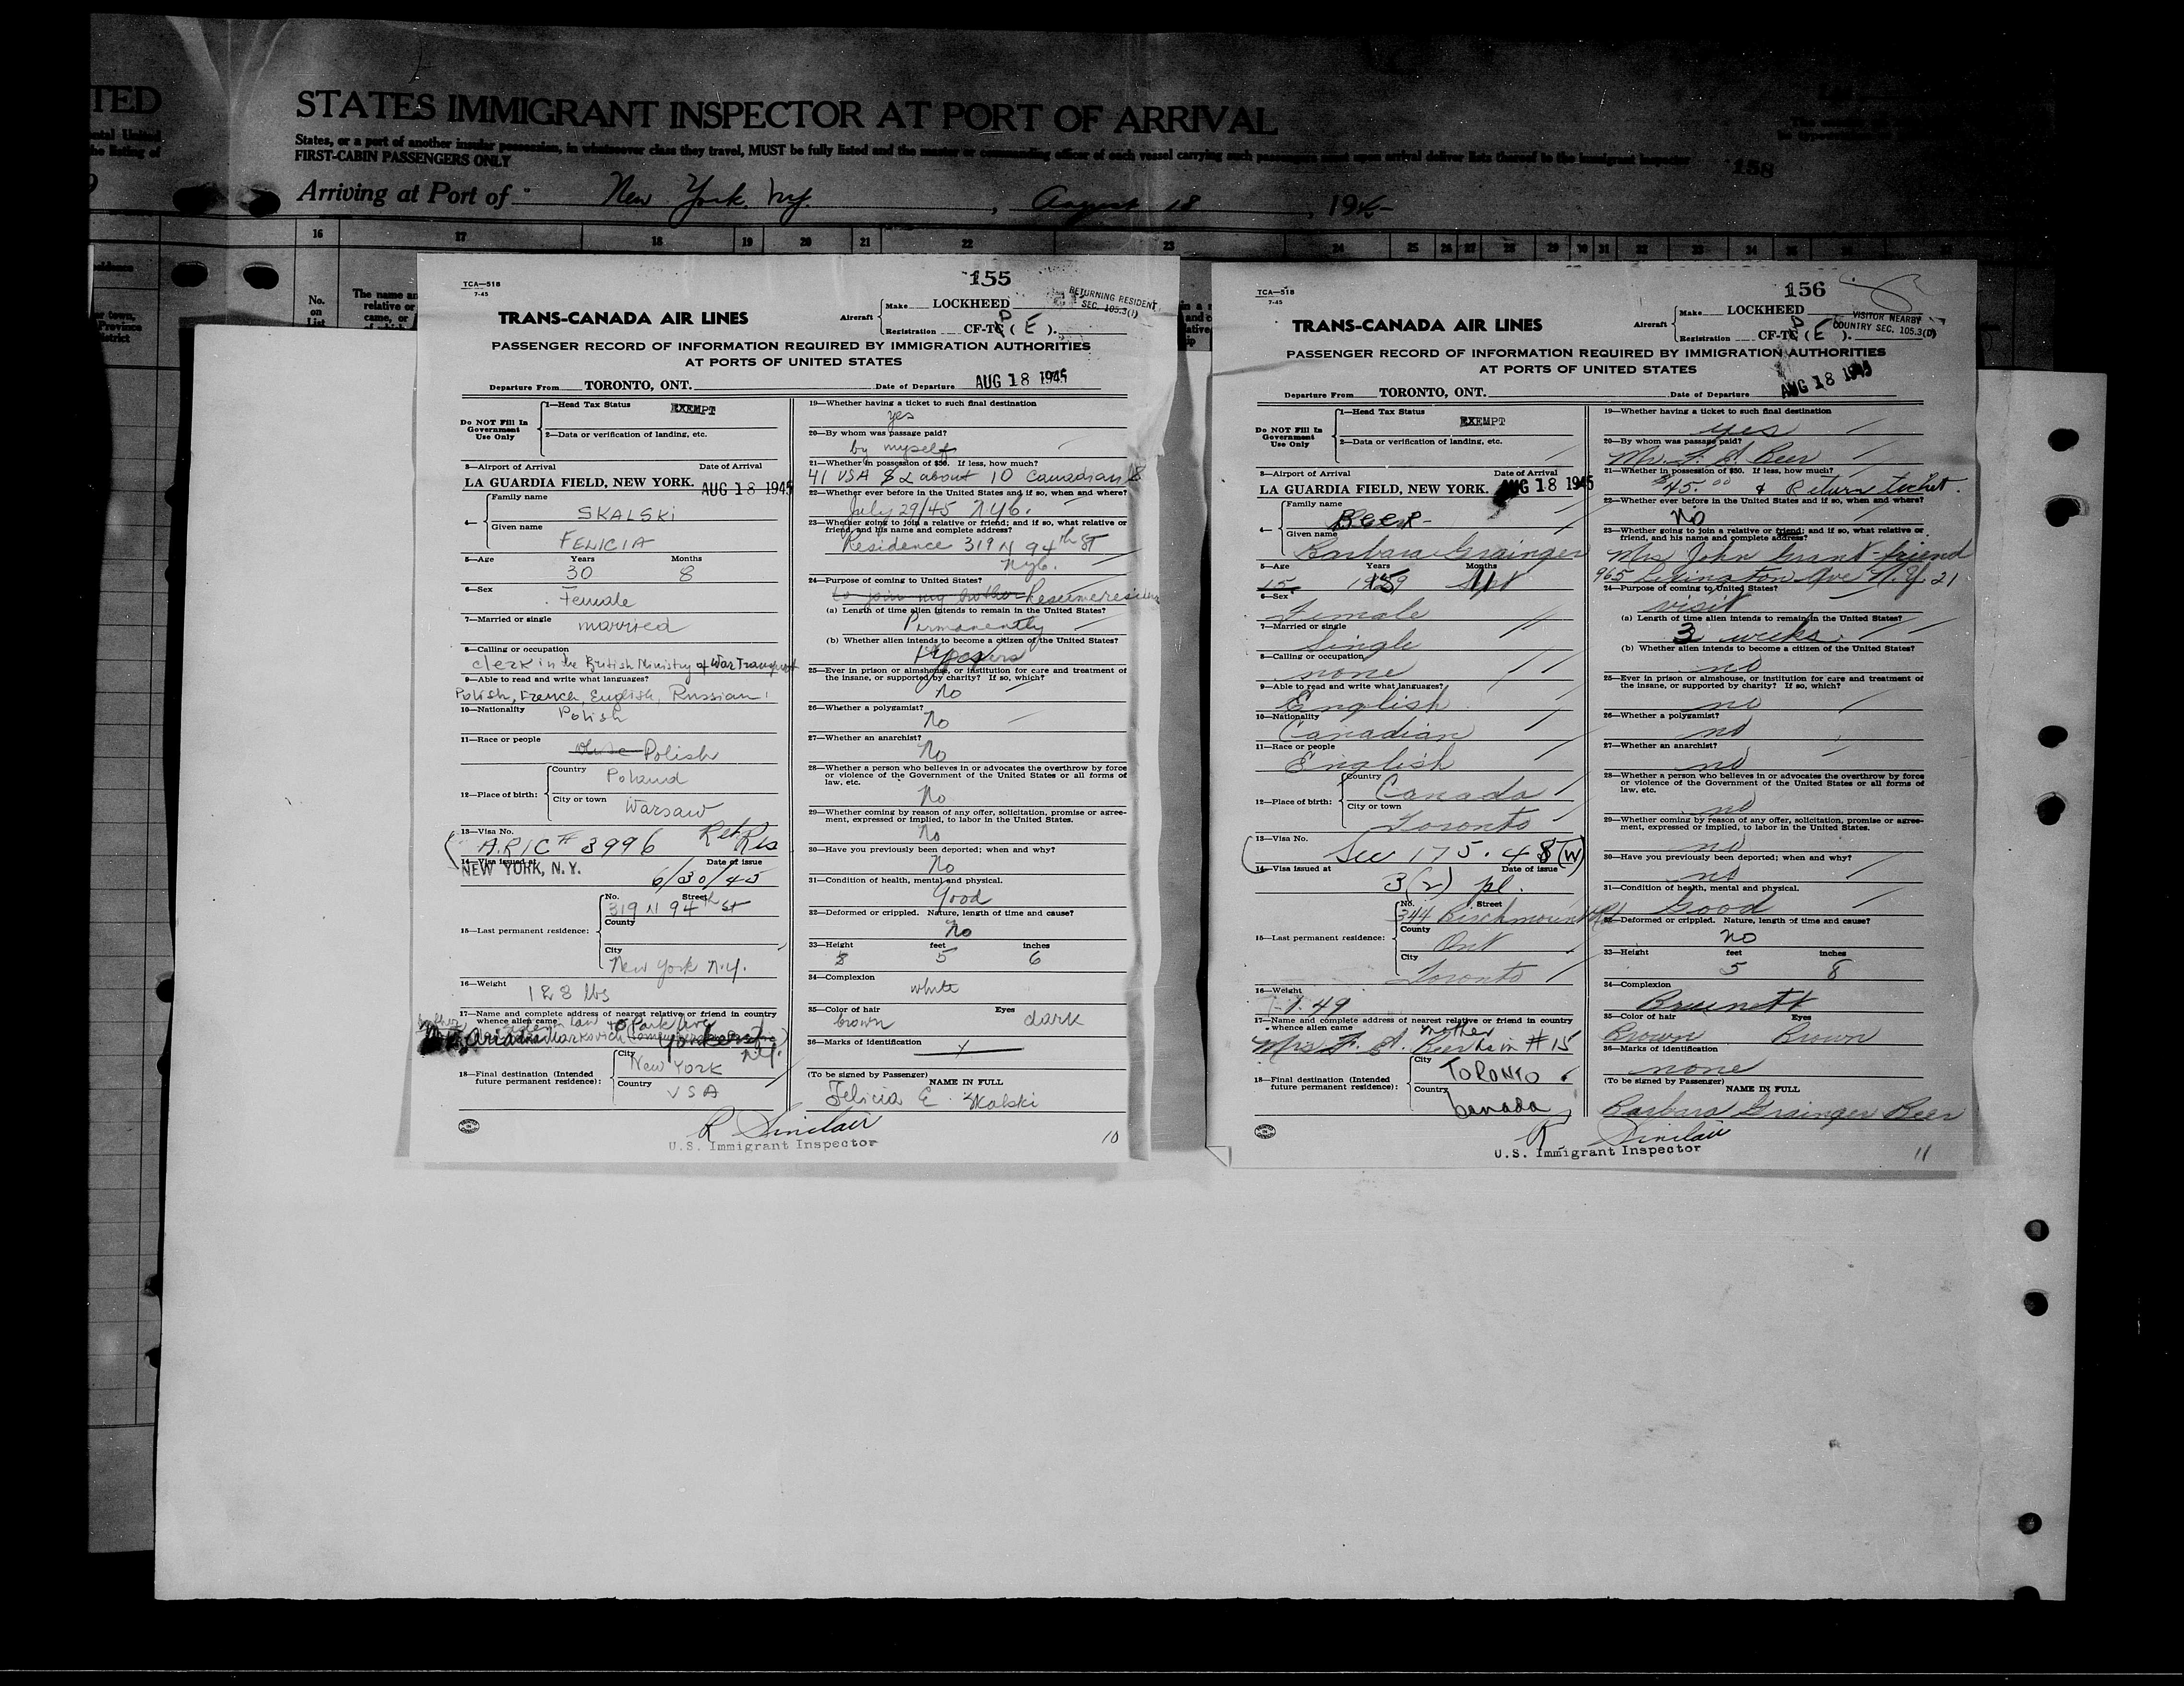 TED
STATES IMMIGRANT INSPECTOR AT PORT OF ARRIVAL
States, or a part of another insular possession, in whatsoever class they travel, MUST be fully listed and the master or commanding officer of each vessel carrying such passengers must upon arrival deliver lists thereof to the immigrant inspector
FIRST-CABIN PASSENGERS ONLY
158
Arriving at Port of New York. N.Y. , August 18 , 1945
16 17 18 19 20 21 22 23 24 25 26 27 28 29 30 31 32 33 34 35
No. on List
The name an
relative or
came, or
155
TCA—518
7-45
RETURNING RESIDENT
SEC. 105.3(1)
TRANS-CANADA AIR LINES
Aircraft Make LOCKHEED
Registration CF-TC ( E ).
PASSENGER RECORD OF INFORMATION REQUIRED BY IMMIGRATION AUTHORITIES
AT PORTS OF UNITED STATES
Departure From TORONTO, ONT. Date of Departure AUG 18 1945
Do NOT Fill In Government Use Only
1—Head Tax Status EXEMPT
2—Data or verification of landing, etc.
3—Airport of Arrival Date of Arrival
LA GUARDIA FIELD, NEW YORK. AUG 18 1945
4— Family name
SKALSKI
Given name
FELICIA
5—Age Years Months
30 8
6—Sex
Female
7—Married or single
married
8—Calling or occupation
clerk in the British Ministry of War Transport
9—Able to read and write what languages?
Polish, French, English, Russian
10—Nationality
Polish
11—Race or people
Polish
12—Place of birth: Country
Poland
City or town
Warsaw
13—Visa No.
A.R.I.C # 3996 Ret Res
14—Visa issued at Date of issue
NEW YORK, N.Y. 6/30/45
15—Last permanent residence: No. Street
319 W 94th St
County
City
New York N.Y.
16—Weight
128 lbs
17—Name and complete address of nearest relative or friend in country
whence alien came
Yonkers N.Y.
18—Final destination (Intended future permanent residence): City
New York
Country
USA
19—Whether having a ticket to such final destination
yes
20—By whom was passage paid?
by myself
21—Whether in possession of $50. If less, how much?
41 USA $ & about 10 Canadian $
22—Whether ever before in the United States and if so, when and where?
July 29/45 NYC.
23—Whether going to join a relative or friend; and if so, what relative or
friend, and his name and complete address?
Residence 319 W 94th ST
NYC.
24—Purpose of coming to United States?
to join my brother Resume residence
(a) Length of time alien intends to remain in the United States?
Permanently
(b) Whether alien intends to become a citizen of the United States?
yes
25—Ever in prison or almshouse, or institution for care and treatment of
the insane, or supported by charity? If so, which?
no
26—Whether a polygamist?
No
27—Whether an anarchist?
No
28—Whether a person who believes in or advocates the overthrow by force
or violence of the Government of the United States or all forms of
law, etc.
No
29—Whether coming by reason of any offer, solicitation, promise or agree-
ment, expressed or implied, to labor in the United States.
No
30—Have you previously been deported; when and why?
No
31—Condition of health, mental and physical.
Good
32—Deformed or crippled. Nature, length of time and cause?
No
33—Height feet inches
5 6
34—Complexion
white
35—Color of hair Eyes
brown dark
36—Marks of identification
(To be signed by Passenger) NAME IN FULL
Felicia E. Skalski
R Sinclair
U.S. Immigrant Inspector
10
156
TCA—518
7-45
VISITOR NEARBY
COUNTRY SEC. 105.3(D)
TRANS-CANADA AIR LINES
Aircraft Make LOCKHEED
Registration CF-TC ( E ).
PASSENGER RECORD OF INFORMATION REQUIRED BY IMMIGRATION AUTHORITIES
AT PORTS OF UNITED STATES
Departure From TORONTO, ONT. Date of Departure AUG 18 1945
Do NOT Fill In Government Use Only
1—Head Tax Status EXEMPT
2—Data or verification of landing, etc.
3—Airport of Arrival Date of Arrival
LA GUARDIA FIELD, NEW YORK. AUG 18 1945
4— Family name
Beer
Given name
Barbara Grainger
5—Age Years Months
15 11
6—Sex
Female
7—Married or single
Single
8—Calling or occupation
none
9—Able to read and write what languages?
English
10—Nationality
Canadian
11—Race or people
English
12—Place of birth: Country
Canada
City or town
Toronto
13—Visa No.
Sec 175.48 (W)
14—Visa issued at Date of issue
3(2) pl.
15—Last permanent residence: No. Street
344 Birchmount Rd
County
Ont
City
Toronto
16—Weight
149
17—Name and complete address of nearest relative or friend in country
whence alien came mother
Mrs F. A. Beer as in # 15
18—Final destination (Intended future permanent residence): City
TORONTO
Country
Canada
19—Whether having a ticket to such final destination
yes
20—By whom was passage paid?
Mr. F. A. Beer
21—Whether in possession of $50. If less, how much?
$45.00 & Return ticket.
22—Whether ever before in the United States and if so, when and where?
No
23—Whether going to join a relative or friend; and if so, what relative or
friend, and his name and complete address?
Mrs John Grant - friend
965 Lexington Ave N.Y. 21
24—Purpose of coming to United States?
visit
(a) Length of time alien intends to remain in the United States?
3 weeks.
(b) Whether alien intends to become a citizen of the United States?
no
25—Ever in prison or almshouse, or institution for care and treatment of
the insane, or supported by charity? If so, which?
no
26—Whether a polygamist?
no
27—Whether an anarchist?
no
28—Whether a person who believes in or advocates the overthrow by force
or violence of the Government of the United States or all forms of
law, etc.
no
29—Whether coming by reason of any offer, solicitation, promise or agree-
ment, expressed or implied, to labor in the United States.
no
30—Have you previously been deported; when and why?
no
31—Condition of health, mental and physical.
Good
32—Deformed or crippled. Nature, length of time and cause?
no
33—Height feet inches
5 8
34—Complexion
Brunett
35—Color of hair Eyes
Brown Brown
36—Marks of identification
none
(To be signed by Passenger) NAME IN FULL
Barbara Grainger Beer
R Sinclair
U.S. Immigrant Inspector
11